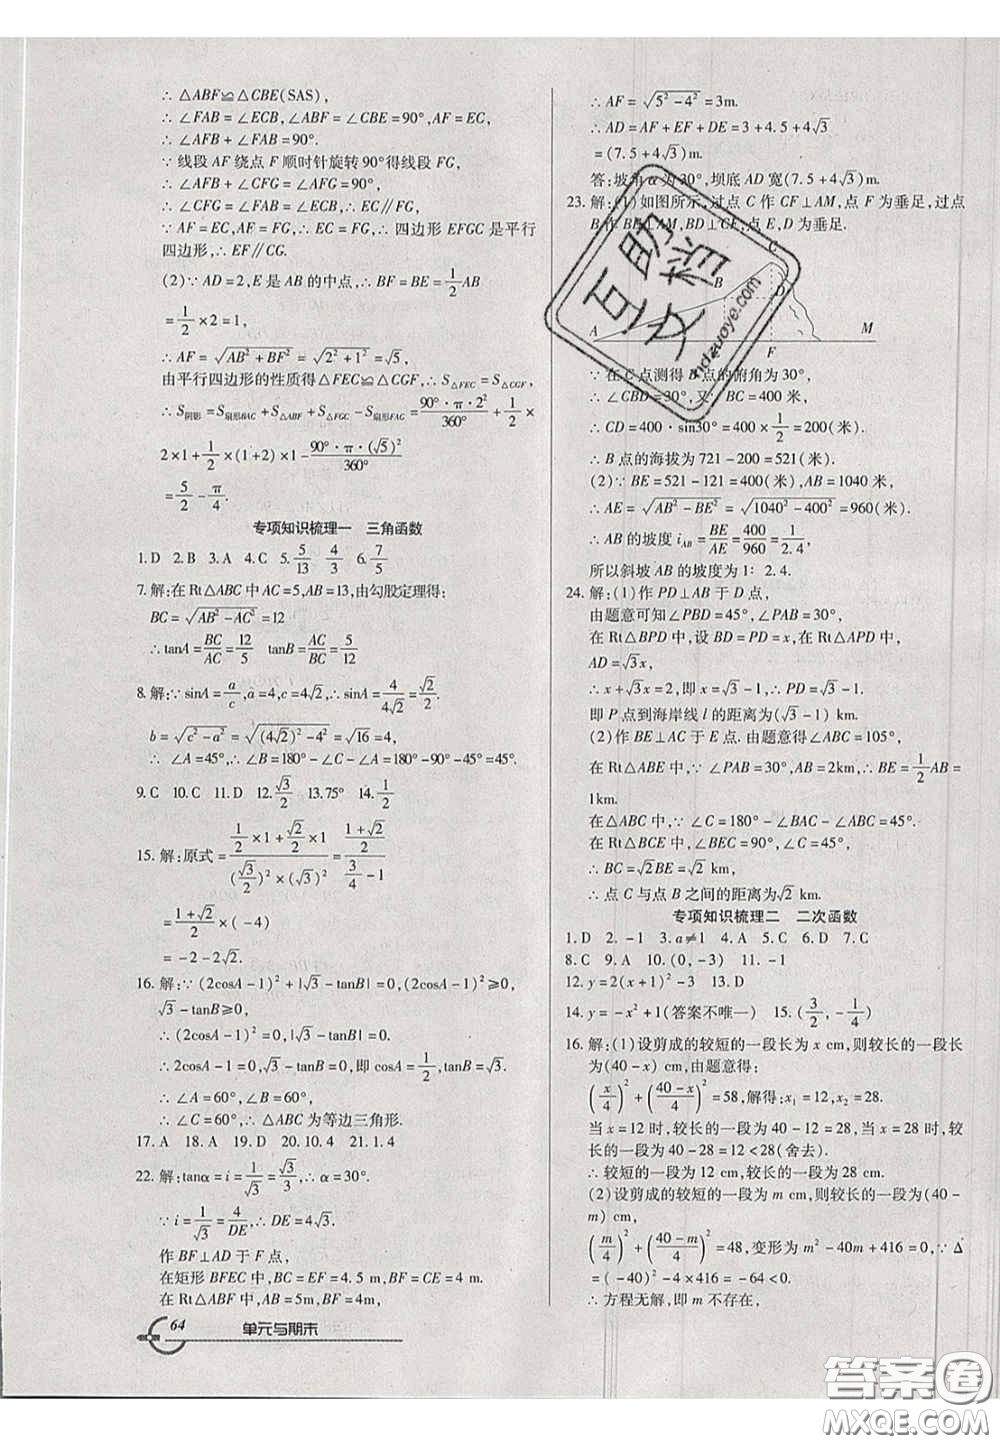 ∴ △ABF≌△CBE(SAS),
∴ ∠FAB = ∠ECB, ∠ABF = ∠CBE = 90°, AF = EC,
∴ ∠AFB + ∠FAB = 90°.
∵ 线段 AF 绕点 F 顺时针旋转 90°得线段 FG,
∴ ∠AFB + ∠CFG = ∠AFG = 90°,
∴ ∠CFG = ∠FAB = ∠ECB, ∴ EC∥FG,
∵ AF = EC, AF = FG, ∴ EC = FG, ∴ 四边形 EFGC 是平行
四边形, ∴ EF∥CG.
(2)∵ AD = 2, E 是 AB 的中点, ∴ BF = BE = 1/2 AB
= 1/2 × 2 = 1,
∴ AF = √(AB² + BF²) = √(2² + 1²) = √5,
由平行四边形的性质得△FEC≌△CGF, ∴ S△FEC = S△CGF,
∴ S阴影 = S扇形BAC + S△ABF + S△FGC − S扇形FAG = 90°·π·2²/360° + 1/2 ×
2×1 + 1/2 ×(1+2)×1 − 90°·π·(√5)²/360°
= 5/2 − π/4.
专项知识梳理一 三角函数
1. D 2. B 3. A 4. C 5. 5/13 4/3 6. 7/5
7. 解:在 Rt△ABC 中 AC = 5, AB = 13, 由勾股定理得:
BC = √(AB² − AC²) = 12
∴ tanA = BC/AC = 12/5 tanB = AC/BC = 5/12
8. 解:∵ sinA = a/c, a = 4, c = 4√2, ∴ sinA = 4/(4√2) = √2/2.
b = √(c² − a²) = √((4√2)² − 4²) = √16 = 4,
∴ ∠A = 45°, ∴ ∠B = 180° − ∠C − ∠A = 180° − 90° − 45° = 45°.
9. C 10. C 11. D 12. √3/2 13. 75° 14. 1/2
15. 解:原式 = (1/2 × 1 + √2/2 × 1)/((√3/2)² × (√3/2)²) = ((1+√2)/2)/(3/4 − 1)
= (1+√2)/2 × (−4)
= −2 − 2√2.
16. 解:∵ (2cosA − 1)² + |√3 − tanB| = 0, (2cosA − 1)² ≥ 0,
√3 − tanB ≥ 0,
∴ (2cosA − 1)² = 0, |√3 − tanB| = 0,
∴ 2cosA − 1 = 0, √3 − tanB = 0, ∴ cosA = 1/2, tanB = √3.
∴ ∠A = 60°, ∠B = 60°,
∴ ∠C = 60°, ∴ △ABC 为等边三角形.
17. A 18. A 19. D 20. 10.4 21. 1.4
22. 解:tanα = i = 1/√3 = √3/3, ∴ α = 30°.
∵ i = 1/√3 = 4/DE, ∴ DE = 4√3.
作 BF⊥AD 于 F 点,
在矩形 BFEC 中, BC = EF = 4.5 m, BF = CE = 4 m,
在 Rt△ABF 中, AB = 5m, BF = 4m,
64 单元与期末
∴ AF = √(5² − 4²) = 3m.
∴ AD = AF + EF + DE = 3 + 4.5 + 4√3
= (7.5 + 4√3) m.
答:坡角 α 为 30°, 坝底 AD 宽(7.5 + 4√3) m.
23. 解:(1)如图所示, 过点 C 作 CF⊥AM, 点 F 为垂足, 过点
B 作 BE⊥AM, BD⊥CF, 点 E、D 为垂足.
C
B
D
A
F
M
∵ 在 C 点测得 B 点的俯角为 30°,
∴ ∠CBD = 30°, 又∵ BC = 400 米,
∴ CD = 400·sin30° = 400 × 1/2 = 200(米).
∴ B 点的海拔为 721 − 200 = 521(米).
(2)∵ BE = 521 − 121 = 400(米), AB = 1040 米,
∴ AE = √(AB² − BE²) = √(1040² − 400²) = 960(米).
∴ AB 的坡度 iAB = BE/AE = 400/960 = 1/2.4,
所以斜坡 AB 的坡度为 1:2.4.
24. 解:(1)作 PD⊥AB 于 D 点,
由题意可知∠PBD = 45°, ∠PAB = 30°,
在 Rt△BPD 中, 设 BD = PD = x, 在 Rt△APD 中,
AD = √3x,
∴ x + √3x = 2, 即 x = √3 − 1, ∴ PD = √3 − 1.
即 P 点到海岸线 l 的距离为(√3 − 1) km.
(2)作 BE⊥AC 于 E 点. 由题意得∠ABC = 105°,
在 Rt△ABE 中, ∵ ∠PAB = 30°, AB = 2km, ∴ BE = 1/2 AB =
1km.
在△ABC 中, ∵ ∠C = 180° − ∠BAC − ∠ABC = 45°.
在 Rt△BCE 中, ∠BEC = 90°, ∠C = 45°,
∴ BC = √2BE = √2 km.
∴ 点 C 与点 B 之间的距离为√2 km.
专项知识梳理二 二次函数
1. D 2. −1 3. a≠1 4. A 5. C 6. D 7. C
8. C 9. A 10. (0, −3) 11. −1
12. y = 2(x + 1)² − 3 13. D
14. y = −x² + 1(答案不唯一) 15. (3/2, −1/4)
16. 解:(1)设剪成的较短的一段长为 x cm, 则较长的一段长
为(40 − x) cm, 由题意得:
(x/4)² + ((40 − x)/4)² = 58, 解得:x₁ = 12, x₂ = 28.
当 x = 12 时, 较长的一段为 40 − 12 = 28, 当 x = 28 时, 较
长的一段为 40 − 28 = 12 < 28(舍去)
∴ 较短的一段为 12 cm, 较长的一段为 28 cm.
(2)设剪成的较短的一段为 m cm, 则较长的一段为(40 −
m) cm,
(m/4)² + ((40 − m)/4)² = 48, 变形为 m² − 40m + 416 = 0, ∵ Δ
= (−40)² − 4 × 416 = −64 < 0,
∴ 方程无解, 即 m 不存在,
答案圈
MXQE.COM